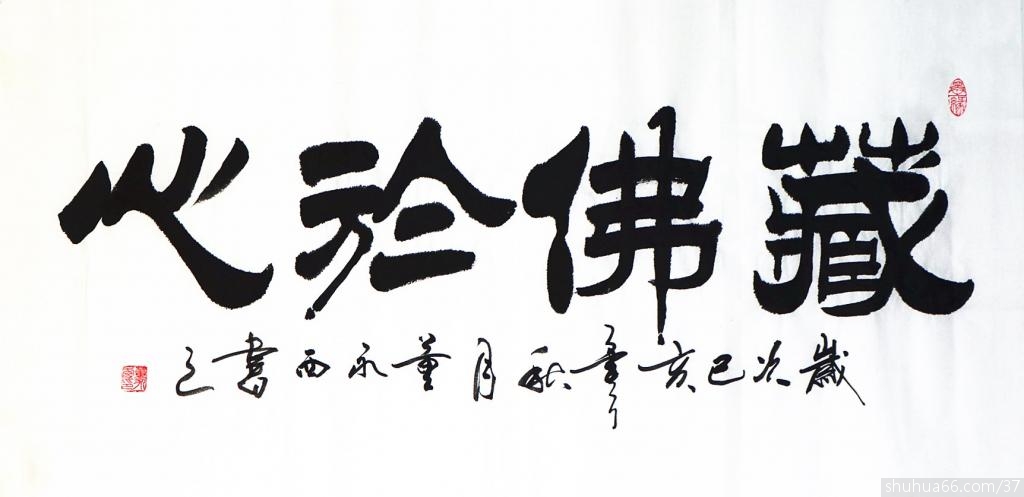 藏佛於心
歲次己亥年秋月董永西書之
shuhua66.com/37